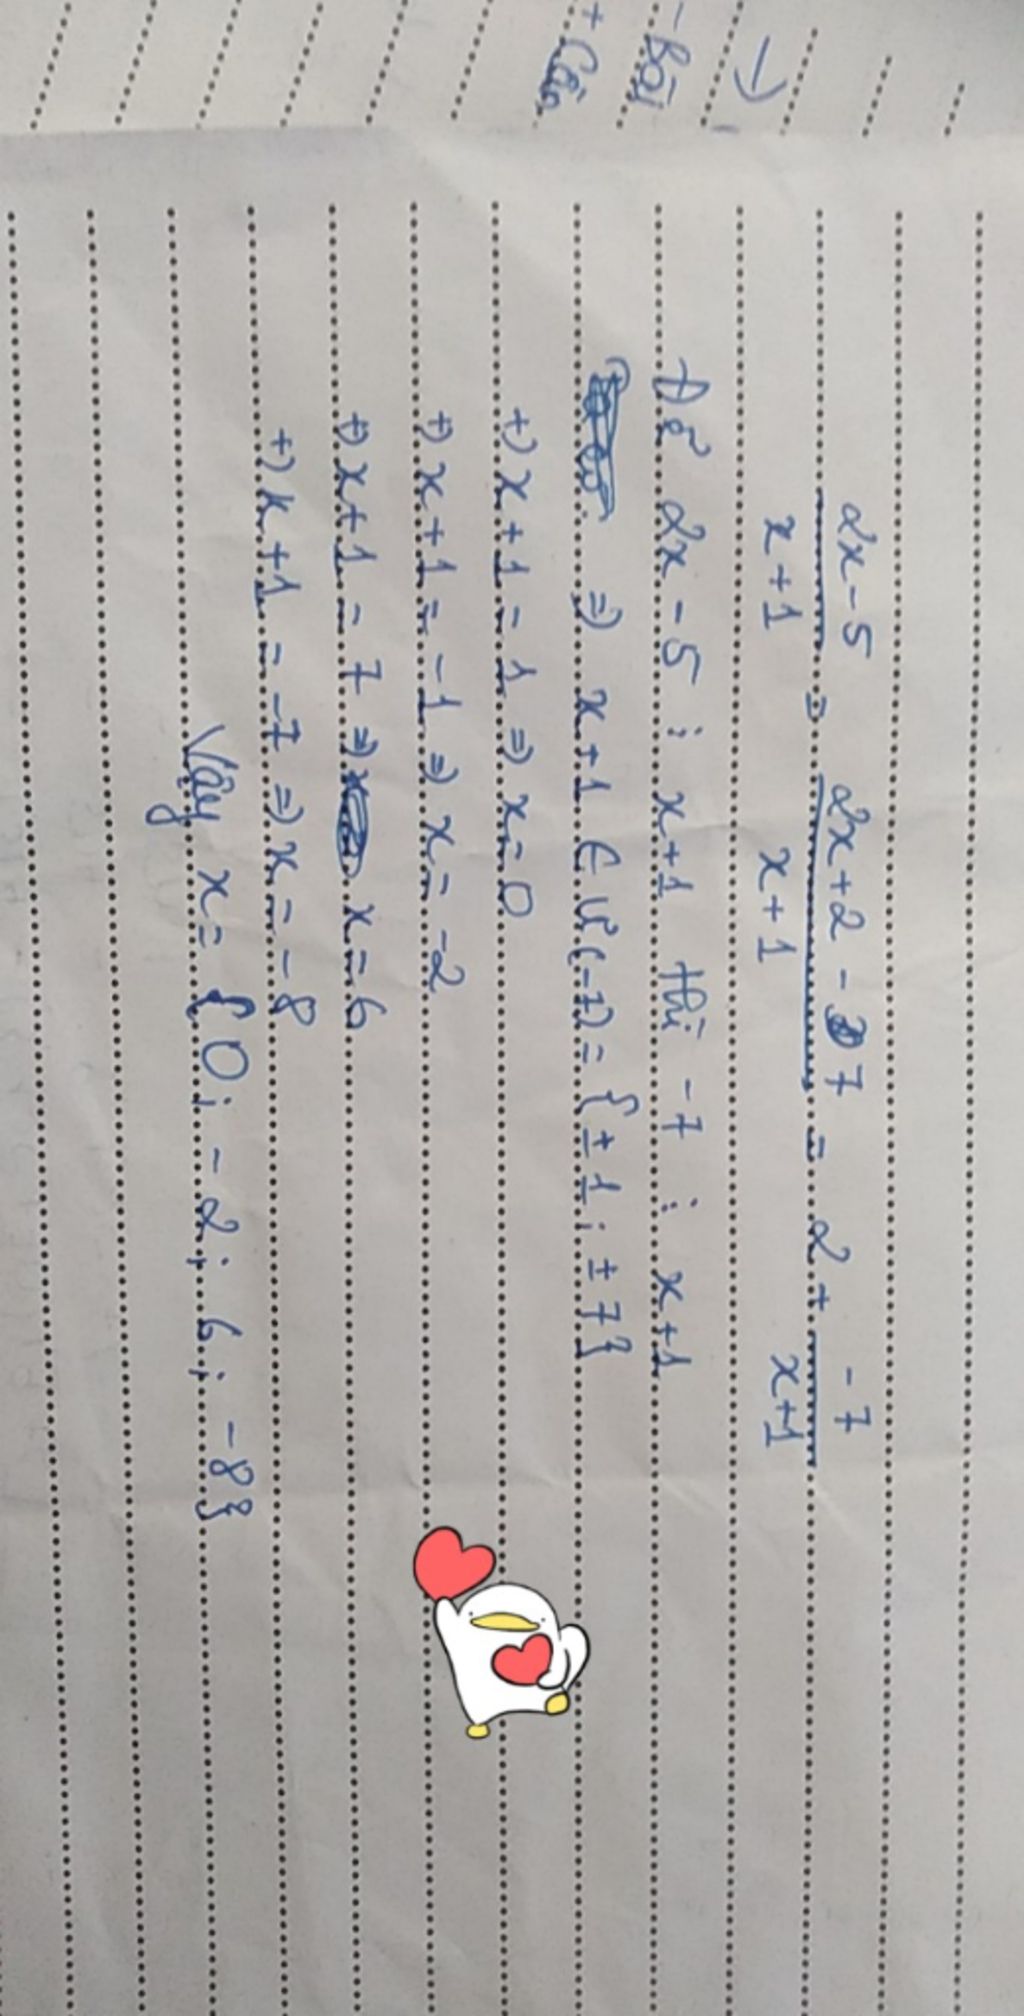 - Bội
+ Cho
2x-5/x+1 = 2x+2-7/x+1 = 2+ -7/x+1
Để 2x-5 ⋮ x+1 thì -7 ⋮ x+1
=> x+1 ∈ Ư(-7) = {±1; ±7}
+) x+1 = 1 => x=0
+) x+1 = -1 => x = -2
+) x+1 = 7 => x=6
+) x+1 = -7 => x = -8
Vậy x= {0; -2; 6; -8}